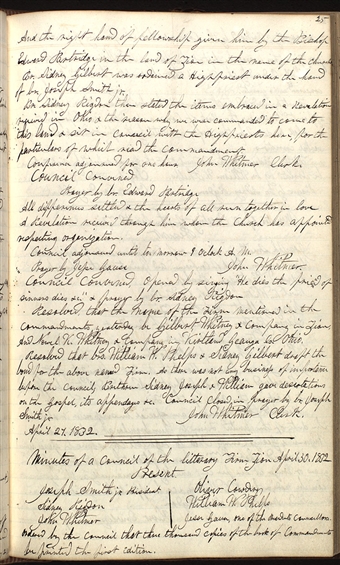 25
And the right hand of fellowship given him by the Bishop
Edward Partridge in the land of Zion in the name of the Church
Br. Sidney Gilbert was ordained a Highpriest under the hand
of br. Joseph Smith jr,
Br. Sidney Rigdon then stated the items embraced in a Revelation
received in Ohio & the reason why we was commanded to come to
this land & sit in Council with the Highpriests here, for the
particulars of which read the commandment
Conference adjourned for one hour John Whitmer Clerk.
Council Convened
Prayer by br. Edward Partridge
All differences settled & the hearts of all run together in love
A Revelation received through him whom the Church has appointed
respecting organization.
Council adjourned until tomorrow 9 oclock A. M.
Prayer by Jesse Gause John Whitmer
Council Convened, Opened by singing He dies the friend of
sinners dies &c & prayer by br. Sidney Rigdon
Resolved that the name of the Firm mentioned in the
Commandments yesterday be Gilbert Whitney & Company in Zion,
And Newel K. Whitney & Company in Kirtland Geauga Co. Ohio.
Resolved that brs. William W. Phelps & Sidney Gilbert draft the
bond for the above named Firm. As there was not any business of importance
before the Council, Brethren Sidney Joseph & William gave dissertations
on the Gospel, its appendages &c. Council Closed in prayer by br. Joseph
Smith jr. John Whitmer Clerk.
April 27, 1832.
Minutes of a Council of the literary Firm Zion April 30, 1832
Present
Joseph Smith jr. Oliver Cowdery
Sidney Rigdon William W. Phelps
John Whitmer Jesse Gause, one of the
Ordered by the Council that three thousand copies of the book of Commandments
be printed the first edition.